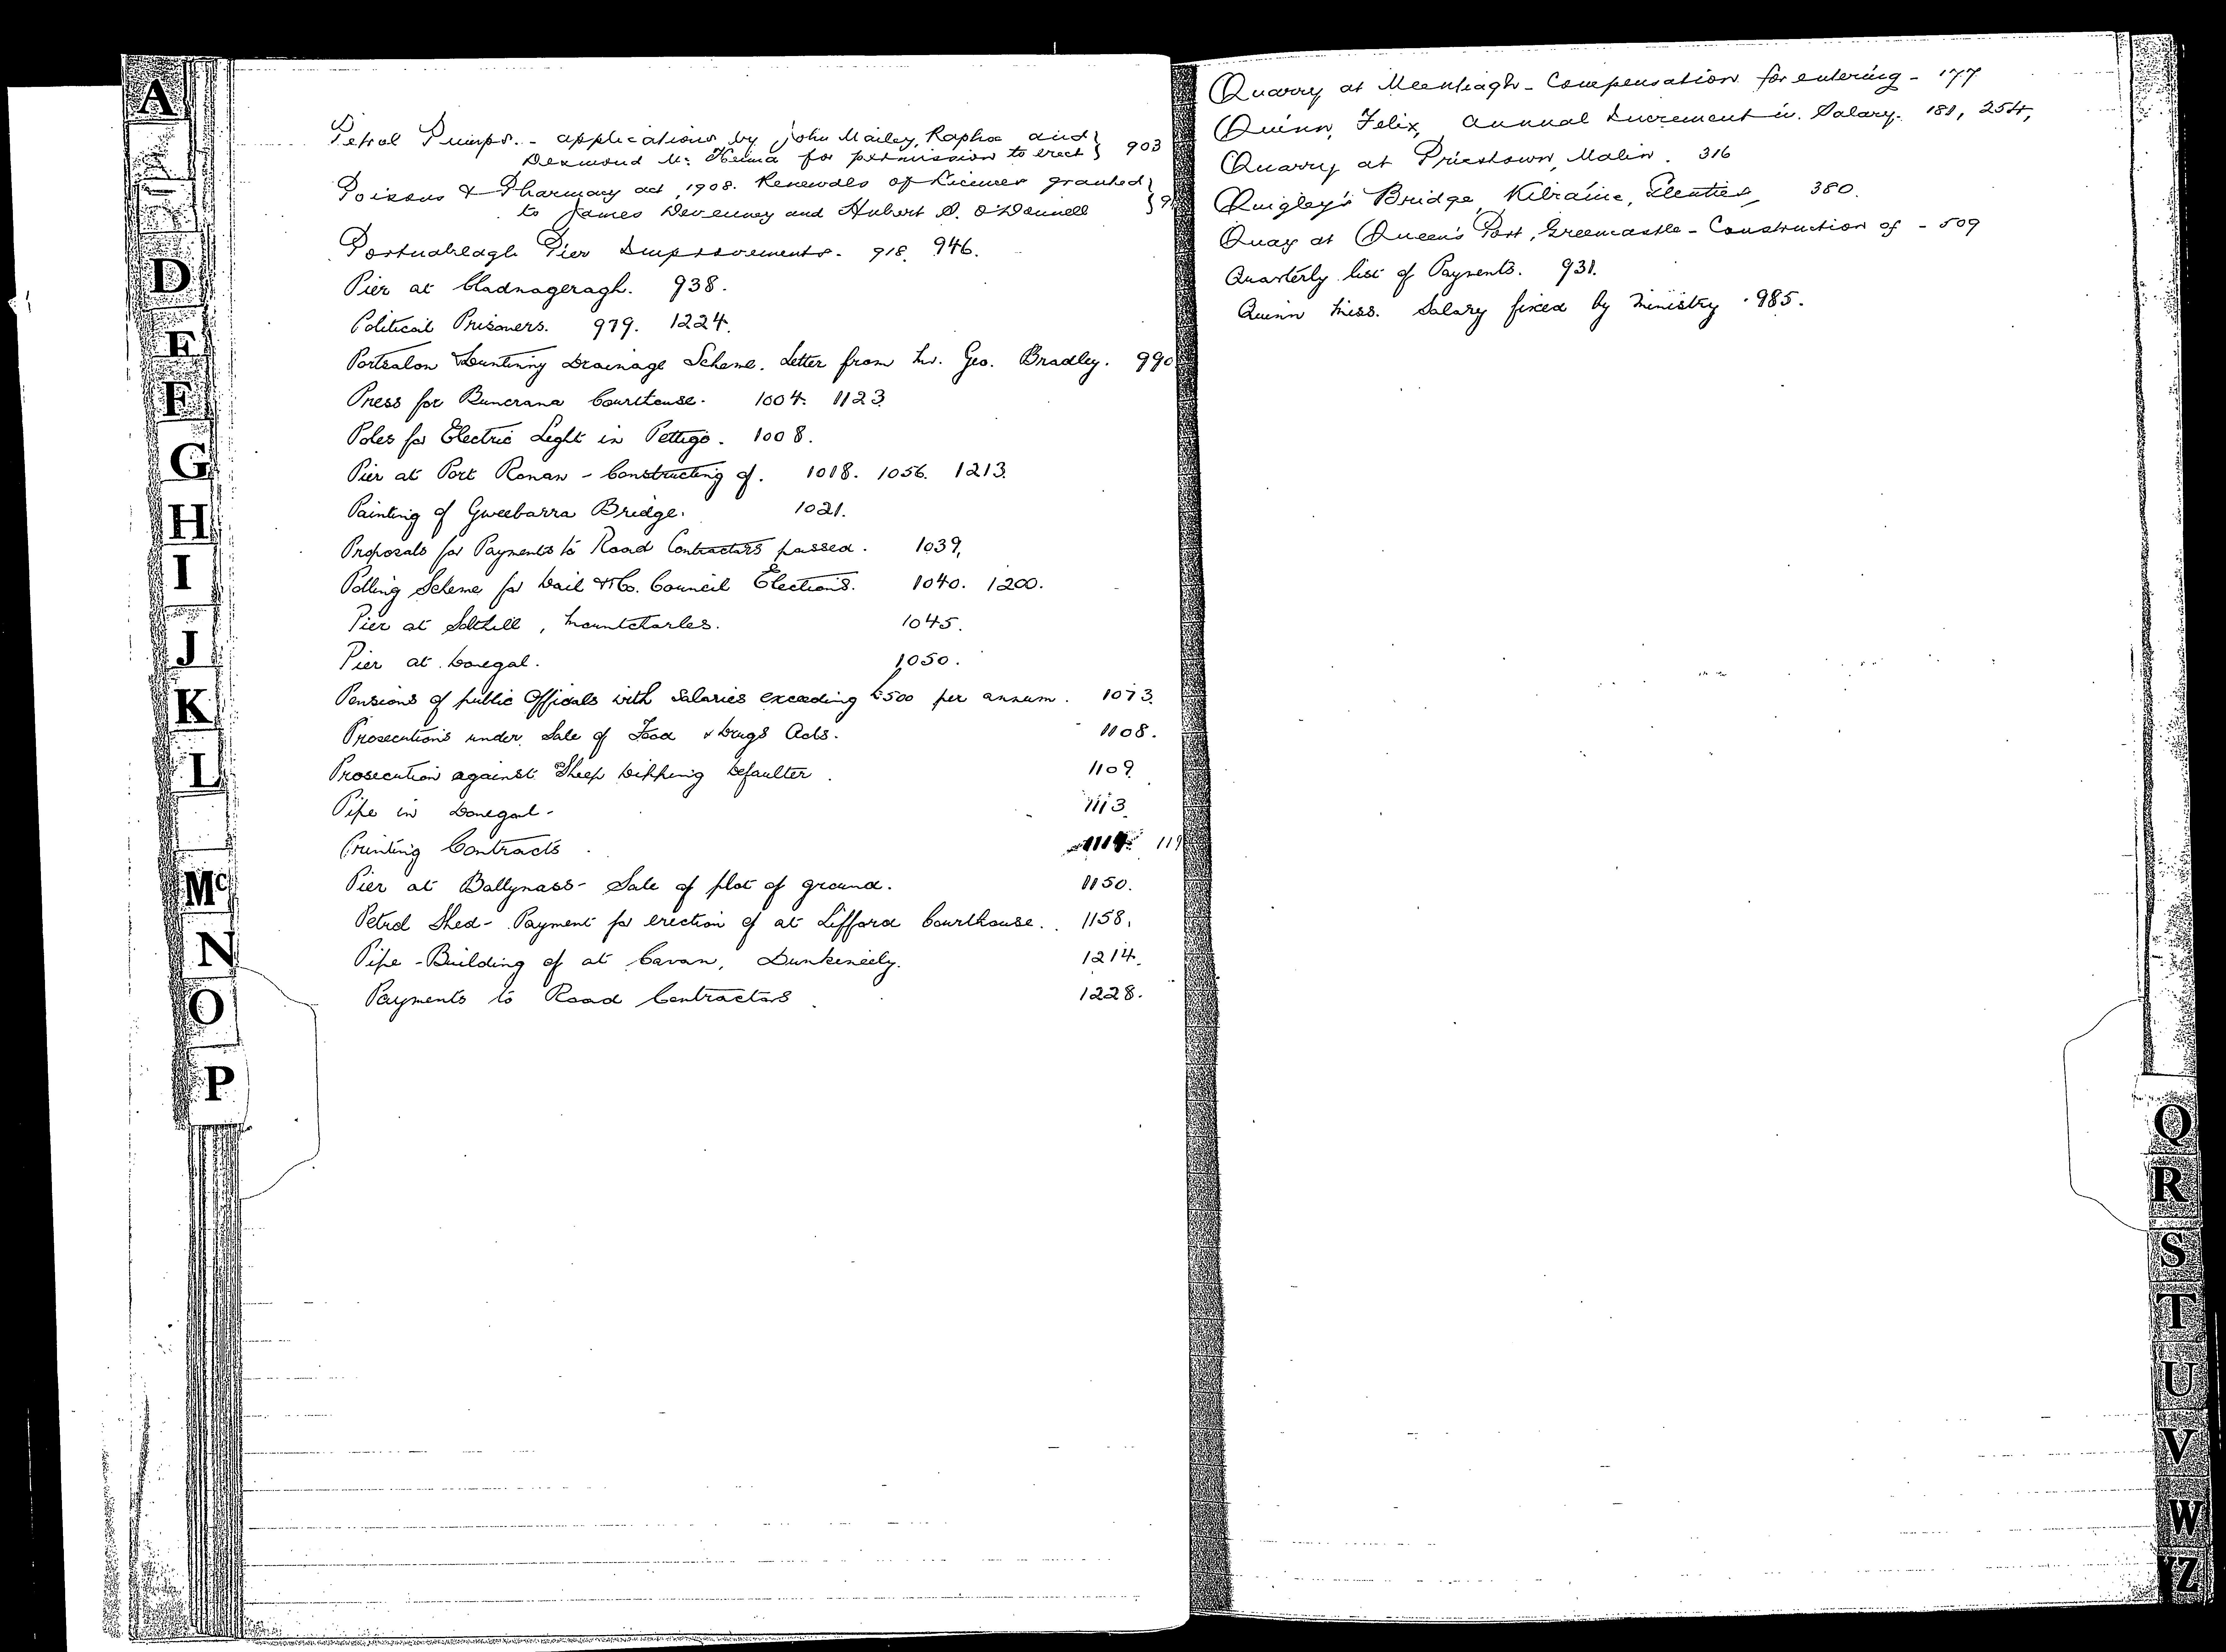 Petrol Pumps. - applications by John Mailey, Raphoe and } 903
Desmond Mc Kenna for permission to erect }
Poisons & Pharmacy act, 1908. Renewals of Licences granted }
to James Devenney and Hubert A. O'Donnell } 91
Portnableagh Pier Improvements. 918. 946.
Pier at Cladnageragh. 938.
Political Prisoners. 979. 1224.
Portsalon & Luntinny Drainage Scheme. Letter from Mr. Geo. Bradley. 990
Press for Buncrana Courthouse. 1004. 1123.
Poles for Electric Light in Pettigo. 1008.
Pier at Port Ronan - Constructing of. 1018. 1056. 1213.
Painting of Gweebarra Bridge. 1021.
Proposals for Payments to Road Contractors passed. 1039.
Polling Scheme for Dail & Co. Council Elections. 1040. 1200.
Pier at Salthill, Mountcharles. 1045.
Pier at Donegal. 1050.
Pensions of public Officials with salaries exceeding £500 per annum. 1073.
Prosecutions under Sale of Food & Drugs Acts. 1108.
Prosecution against Sheep Dipping Defaulter. 1109.
Pipe in Donegal - 1113.
Printing Contracts. 1114. 119
Pier at Ballynass - Sale of plot of ground. 1150.
Petrol Shed - Payment for erection of at Lifford Courthouse. 1158.
Pipe - Building of at Cavan, Dunkineely. 1214.
Payments to Road Contractors. 1228.
Quarry at Meentiagh - Compensation for entering - 177
Quinn, Felix, annual Increment in Salary. 181, 254,
Quarry at Priestown, Malin. 316
Quigley's Bridge, Kilraine, Glenties, 380.
Quay at Queen's Port, Greencastle - Construction of - 509
Quarterly list of Payments. 931.
Quinn Miss. Salary fixed by Ministry. 985.
A
D
E
F
G
H
I
J
K
L
Mc
N
O
P
Q
R
S
T
U
V
W
YZ